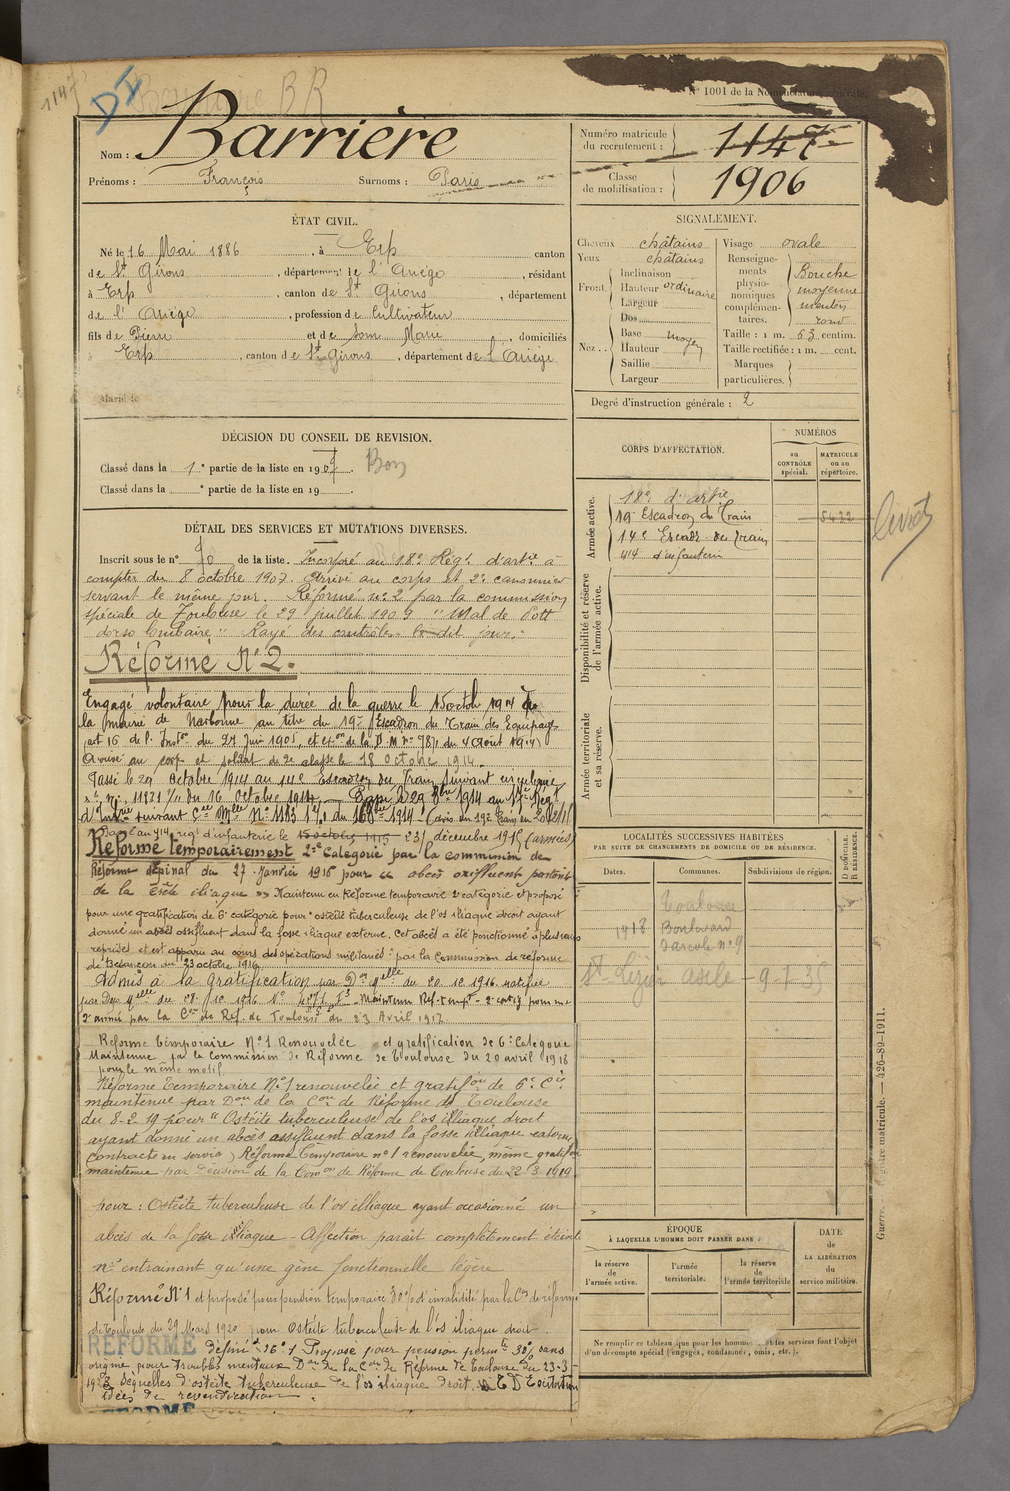 1147
DI
Barrière BR
N° 1001 de la Nomenclature générale.
Nom : Barrière
Prénoms : François Surnoms : Paris
Numéro matricule du recrutement : 1147
Classe de mobilisation : 1906
ÉTAT CIVIL.
Né le 16 Mai 1886, à Erp canton
de St Girons, département de l'Ariège, résidant
à Erp, canton de St Girons, département
de l'Ariège, profession de Cultivateur
fils de Pierre et de Som Marie, domiciliés
à Erp, canton de St Girons, département de l'Ariège
Marié le
SIGNALEMENT.
Cheveux châtains
Yeux châtains
Front. Inclinaison
Hauteur ordinaire
Largeur
Nez.. Dos
Base moyen
Hauteur
Saillie
Largeur
Visage ovale
Renseignements physionomiques complémentaires. Bouche moyenne menton rond
Taille : 1 m. 63 centim.
Taille rectifiée : 1 m. cent.
Marques particulières.
Degré d'instruction générale : 2
DÉCISION DU CONSEIL DE REVISION.
Classé dans la 1e partie de la liste en 1907. Bon
Classé dans la e partie de la liste en 19 .
DÉTAIL DES SERVICES ET MUTATIONS DIVERSES.
Inscrit sous le n° 90 de la liste. Incorporé au 18e Rég. d'artie à
compter du 8 octobre 1907. Arrivé au corps et 2e canonnier
servant le même jour. Réformé n° 2 par la commission
spéciale de Toulouse le 29 juillet 1909 " Mal de Pott
dorso lombaire " Rayé des contrôles le dit jour.
Réformé N° 2.
Engagé volontaire pour la durée de la guerre le 15 octob 1914 à
la mairie de Narbonne au titre du 19e Escadron du Train des Equipages
(art 16 de l'Inston du 27 Juin 1905, et de la D. M. n° du 4 Août 1914)
Arrivé au corps et soldat de 2e classe le 18 octobre 1914.
Passé le 29 octobre 1914 au 14e Escadron du Train suivant circulaire
n° 11821 du 16 octobre 1914
d'Infrie suivant Cre Mlle N° 1183
Passé au 414 régt d'infanterie le 15 octobre 1915 31 décembre 1915 (armées)
Réformé temporairement 2e Catégorie par la commission de
Réforme d'Epinal du 27 Janvier 1916 pour " abcès ossifluent partant
de la crête iliaque " Maintenu en Réforme temporaire 2e catégorie et proposé
pour une gratification de 6e catégorie pour ostéite tuberculeuse de l'os iliaque droit ayant
donné un abcès ossifluent dans la fosse iliaque externe. Cet abcès a été ponctionné à plusieurs
reprises et est apparu au cours des opérations militaires : par la Commission de réforme
de Besançon du 23 octobre 1916
Admis à la gratification par Don Mlle du 20.10.1916 notifiée
par Dep. Mlle du 28.10.1916 N° Maintenu Ref. tempre 2e catég pour une
2e année par la Con de Ref. de Toulouse du 23 Avril 1917
Réforme temporaire N° 1 Renouvelée et gratification de 6e Catégorie
Maintenue par la Commission de Réforme de Toulouse du 20 avril 1918
pour le même motif
Réforme temporaire N° 1 renouvelée et gratifon de 6e Cie
maintenue par Don de la Con de Réforme de Toulouse
du 8-2-19 pour " Ostéite tuberculeuse de l'os iliaque droit
ayant donné un abcès assifluent dans la fosse iliaque externe
contracté en service) Réforme temporaire n° 1 renouvelée, même gratifon
maintenue par décision de la Comon de Réforme de Toulouse du 22-3-1919
pour : Ostéite tuberculeuse de l'os illiaque ayant occasionné un
abcès de la fosse illiaque - Affection parait complètement éteinte
n'entrainant qu'une gêne fonctionnelle légère
Réformé N° 1 et proposé pour pension temporaire 30% d'invalidité par la Con de réforme
de Toulouse du 29 Mars 1920 pour Ostéite tuberculeuse de l'os iliaque droit
RÉFORMÉ définif n° 1 Proposé pour pension permte 30% sans
origine pour troubles mentaux Don de la Con de Réforme de Toulouse du 23-3-
1923 Séquelles d'ostéite tuberculeuse de l'os iliaque droit.
idées de revendication
RÉFORMÉ
CORPS D'AFFECTATION.
NUMÉROS
au CONTRÔLE spécial.
MATRICULE ou au répertoire.
Armée active.
18e d'artie
19e Escadron du Train 5432
14e Escadr. du Train
414 d'infanterie
livret
Disponibilité et réserve de l'armée active.
Armée territoriale et sa réserve.
LOCALITÉS SUCCESSIVES HABITÉES
PAR SUITE DE CHANGEMENTS DE DOMICILE OU DE RÉSIDENCE.
Dates.
Communes.
Subdivisions de région.
D. DOMICILE. R. RÉSIDENCE.
Toulouse
1918 Boulevard
d'arcole n° 9
St-Lizier asile - 9-7-35
ÉPOQUE
À LAQUELLE L'HOMME DOIT PASSER DANS :
la réserve de l'armée active.
l'armée territoriale.
la réserve de l'armée territoriale
DATE de LA LIBÉRATION du service militaire.
Ne remplir ce tableau que pour les hommes dont les services font l'objet
d'un décompte spécial (engagés, condamnés, omis, etc.).
Guerre. Registre matricule. — 426-89-1911.